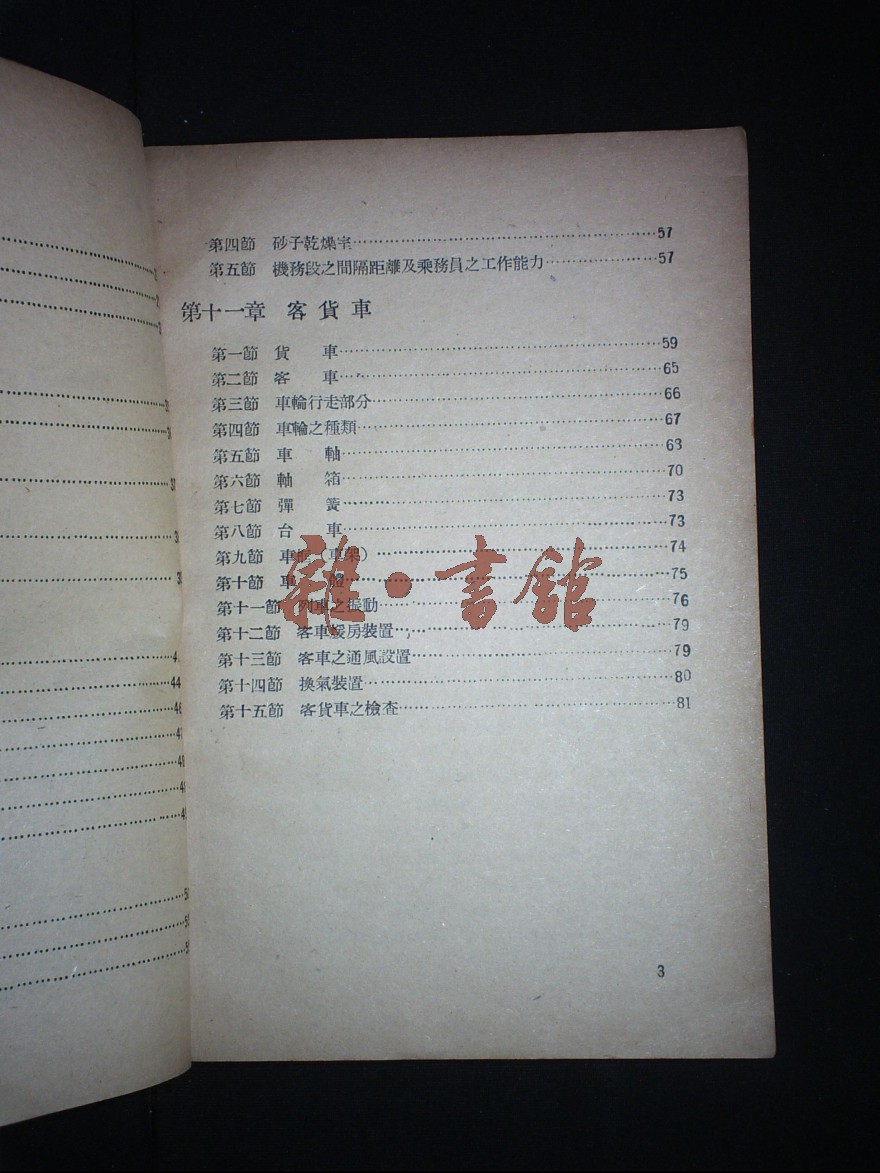 第四節 砂子乾燥室……57
第五節 機務段之間隔距離及乘務員之工作能力……57
第十一章 客貨車
第一節 貨車……59
第二節 客車……65
第三節 車輪行走部分……66
第四節 車輪之種類……67
第五節 車軸……68
第六節 軸箱……70
第七節 彈簧……73
第八節 台車……73
第九節 車 (車架)……74
第十節 車體……75
第十一節 列車之振動……76
第十二節 客車暖房裝置……79
第十三節 客車之通風設置……79
第十四節 換氣裝置……80
第十五節 客貨車之檢查……81
雜·書館
3
44
46